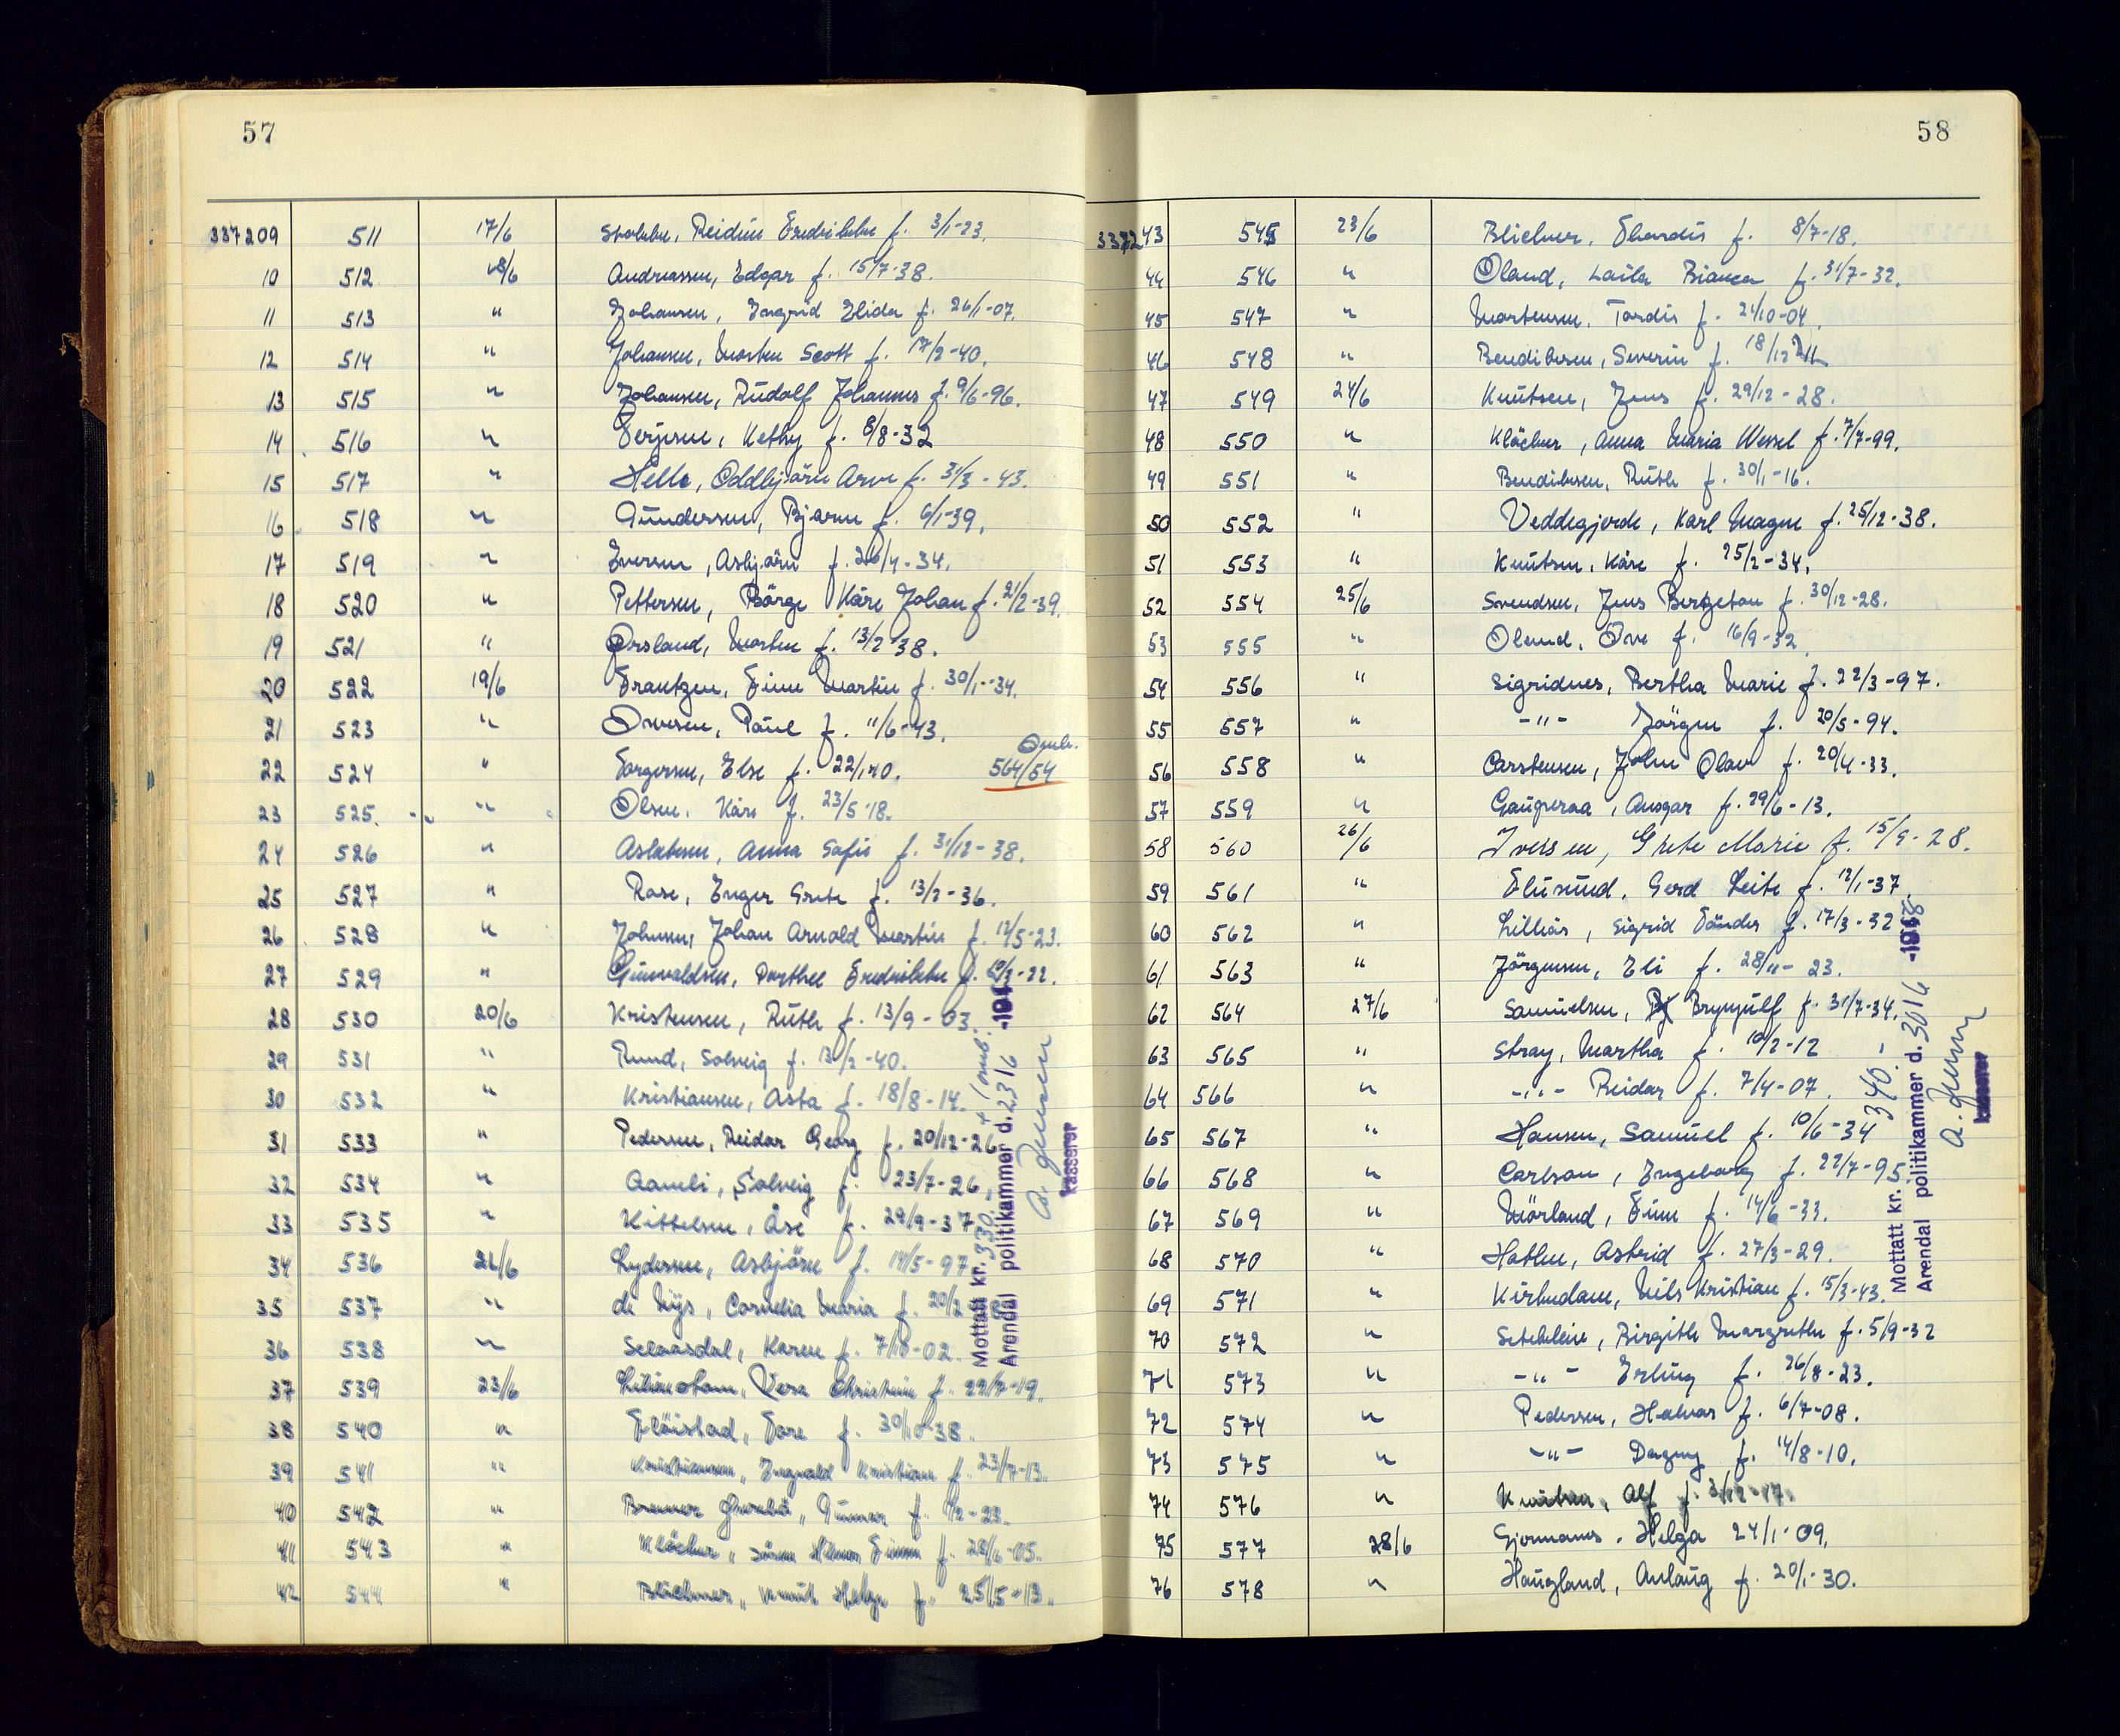 57
337209 511 17/6 Stokke, Reidun Fredrikke f. 3/1-23.
10 512 18/6 Andreassen, Edgar f. 15/7-38.
11 513 " Johansen, Ingrid Elida f. 26/1-07.
12 514 " Johansen, Morten Scott f. 17/2-40.
13 515 " Johansen, Rudolf Johannes f. 9/6-96.
14 516 " Terjesen, Kethy f. 8/8-32
15 517 " Helle, Oddbjörn Arve f. 31/3-43.
16 518 " Gundersen, Bjarne f. 6/1-39.
17 519 " Iversen, Asbjörn f. 26/4-34.
18 520 " Pettersen, Börge Kåre Johan f. 21/2-39.
19 521 " Ørsland, Morten f. 13/2-38.
20 522 19/6 Frantzen, Finn Martin f. 30/1-34.
21 523 " Ovesen, Paul f. 11/6-43.
22 524 " Torgersen, Else f. 22/1-40. Omb. 564/54
23 525. " Olsen, Kåre f. 23/5-18.
24 526 " Aslaksen, Anna Sofie f. 31/12-38.
25 527 " Rose, Inger Grete f. 13/2-36.
26 528 " Johnsen, Johan Arnold Martin f. 12/5-23.
27 529 " Gunvaldsen, Dorthee Fredrikke f.
28 530 20/6 Kristensen, Ruth f. 13/9-03.
29 531 " Rund, Solveig f. 13/2-40.
30 532 " Kristiansen, Asta f. 18/8-14.
31 533 " Pedersen, Reidar Georg f. 20/12-26
32 534 " Aamli, Solveig f. 23/7-26.
33 535 " Kittelsen, Åse f. 29/9-37
34 536 21/6 Lydersen, Asbjörn f. 14/5-97
35 537 " de Nijs, Cornelia Maria f. 20/2
36 538 " Selaasdal, Karen f. 7/10-02.
37 539 23/6 Vera Christine f. 29/7-19.
38 540 " Flöistad, Tore f. 30/10-38.
39 541 " Kristiansen, Ingvald Kristian f. 23/7-13.
40 542 " Gunnar f.
41 543 " Klöcker, Sören Finn f. 28/6-05.
42 544 " Blichner, Knut Helge f. 25/5-13.
Mottatt kr. 330. + 1 omb.
Arendal politikammer d. 23/6
A. Jensen
kasserer
58
337243 545 23/6 Blichner, Thordis f. 8/7-18.
44 546 " Öland, Laila Bianca f. 31/7-32.
45 547 " Mortensen, Tordis f. 21/10-04.
46 548 " Bendiksen, Severin f. 18/12
47 549 24/6 Knutsen, Jens f. 29/12-28.
48 550 " Klöcker, Anna Maria Wessel f. 7/7-99.
49 551 " Bendiksen, Ruth f. 30/1-16.
50 552 " Veddegjerde, Karl Magne f. 25/12-38.
51 553 " Knutsen, Kåre f. 25/2-34.
52 554 25/6 Svendsen, Jens Bergeton f. 30/12-28.
53 555 " Ove f. 16/9-32.
54 556 " Sigridnes, Bertha Marie f. 22/3-97.
55 557 " -"- Jörgen f. 20/5-94.
56 558 " Carstensen, John Olav f. 20/4-33.
57 559 " Gauperaa, Ansgar f. 29/6-13.
58 560 26/6 Iversen, Grete Marie f. 15/9-28.
59 561 " Gerd f. 12/1-37.
60 562 " Lilliås, Sigrid Tånder f. 17/3-32
61 563 " Jörgensen, Eli f. 28/11-23.
62 564 27/6 Samuelsen, Brynjulf f. 31/7-34.
63 565 " Stray, Martha f. 10/2-12
64 566 " -"- Reidar f. 7/4-07.
65 567 " Hansen, Samuel f. 10/6-34
66 568 " Carlson, Ingeborg f. 22/7-95
67 569 " Mörland, Finn f. 14/6-33.
68 570 " Hatlen, Astrid f. 27/3-29.
69 571 " Kirkedam, Nils Kristian f. 15/3-43.
70 572 " Setekleiv, Birgith Margrethe f. 5/9-32
71 573 " -"- Erling f. 26/8-23.
72 574 " Pedersen, Halvor f. 6/7-08.
73 575 " -"- Dagny f. 14/8-10.
74 576 " Knutsen, Alf f. 3/12-17.
75 577 28/6 Gjermanes, Helga 24/1-09.
76 578 " Haugland, Anlaug f. 20/1-30.
Mottatt kr. 340.-
Arendal politikammer d. 30/6 -1958
A. Jensen
kasserer